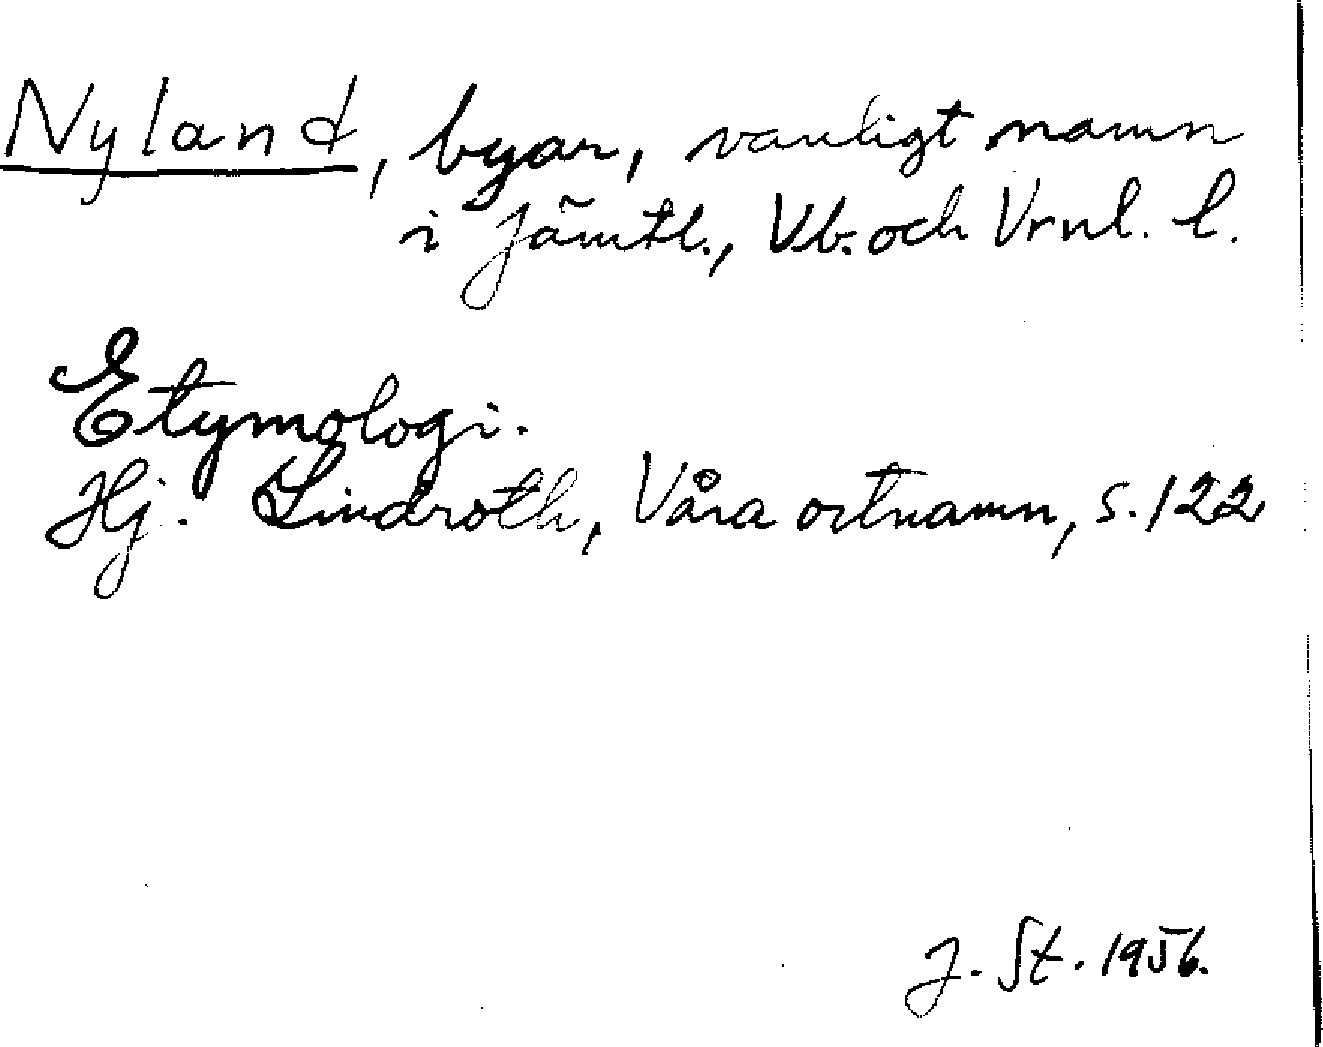 Nyland, byar, vanligt namn
i Jämtl., Vb. och Vrml. l.
Etymologi.
Hj. Lindroth, Våra ortnamn, s. 122
J. St. 1956.